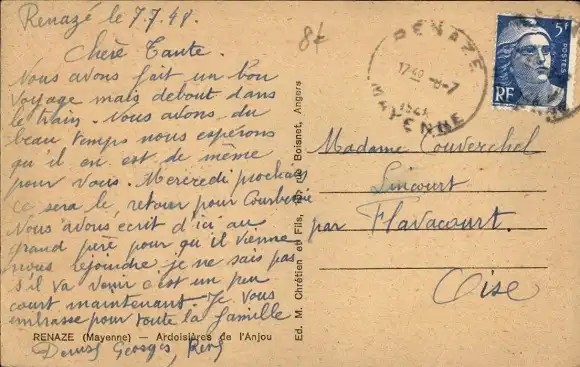 Renazé le 7.7.48.
8f
Chère Tante.
Nous avons fait un bon
voyage mais debout dans
le train. Nous avons du
beau temps nous espérons
qu'il en est de même
pour vous. Mercredi prochain
ce sera le retour pour Courbevoie
Nous avons écrit d'ici au
grand père pour qu'il vienne
nous rejoindre je ne sais pas
s'il va venir c'est un peu
court maintenant. Je vous
embrasse pour toute la famille
RENAZE (Mayenne) — Ardoisières de l'Anjou
Georges,
Ed. M. Chrétien et Fils, Boisnet, Angers
RENAZE
8-7
MAYENNE
5F
POSTES
RF
Madame Couverchel
Lincourt
par Flavacourt.
Oise